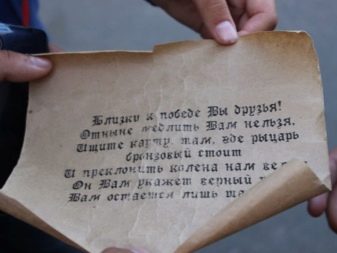 Близки к победе Вы друзья!
Отныне медлить Вам нельзя,
Ищите карту там, где рыцарь
бронзовый стоит
И преклонить колена нам
Он Вам укажет верный
Вам остается лишь